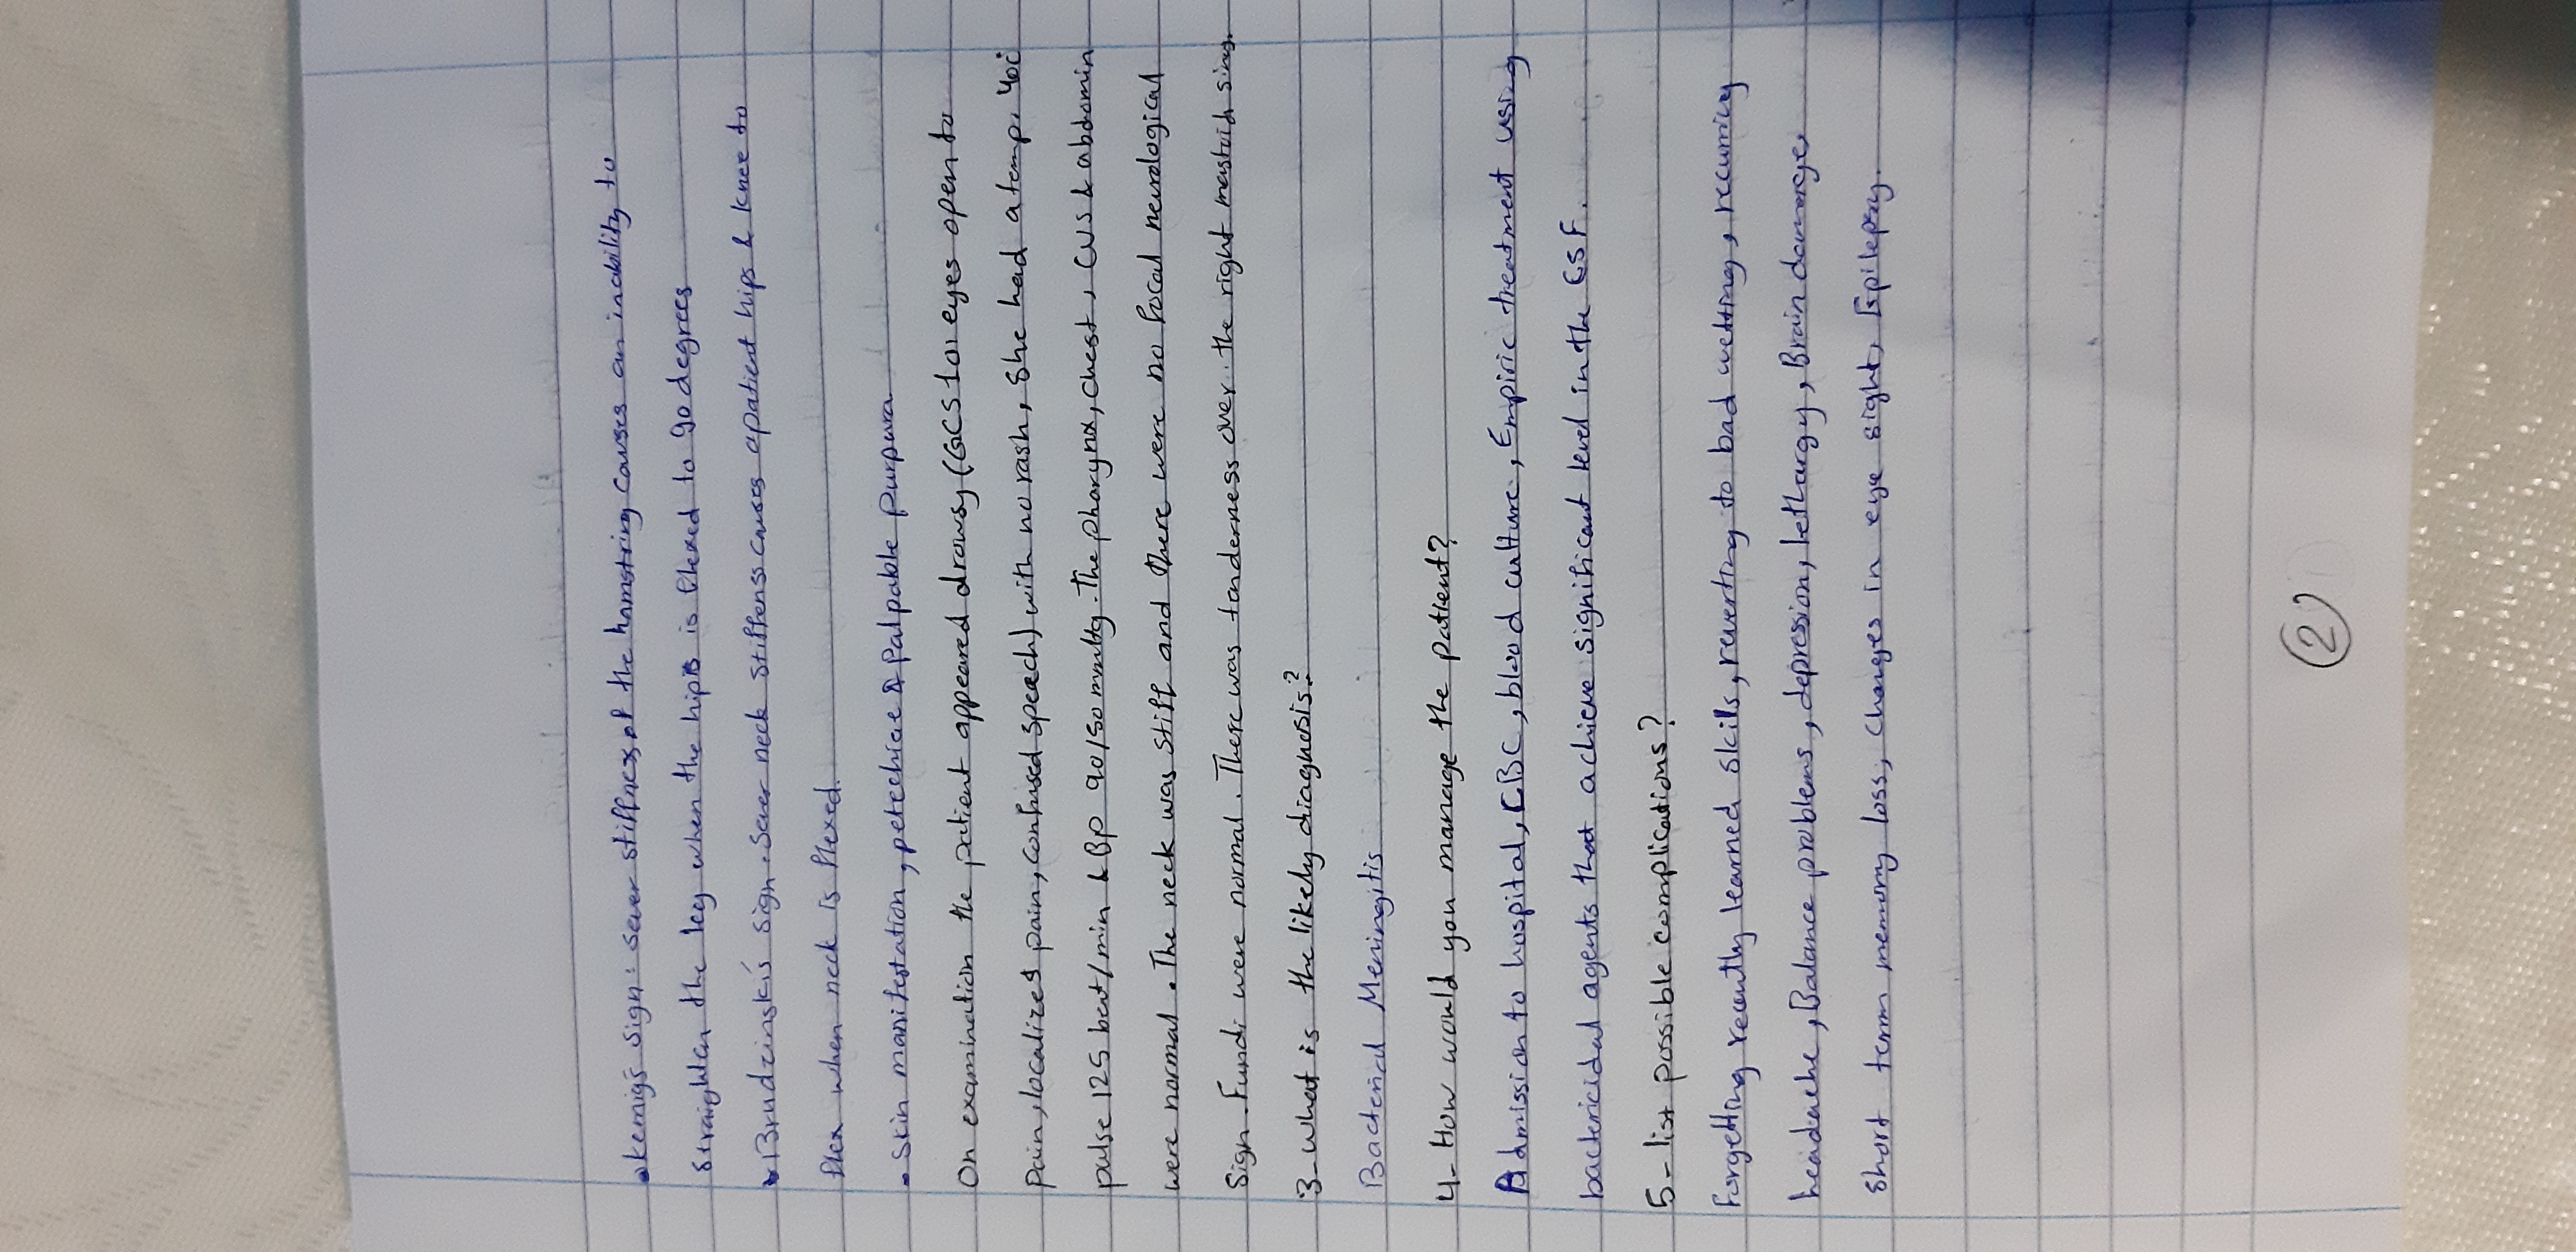 • kernig's sign: sever stiffness of the hamstring causes an inability to
straighten the leg when the hip is flexed to 90 degrees
• Brudzinski's sign. Sever neck stiffenss causes a patient hips & knee to
flex when neck is flexed.
• Skin manifestation, petechiae & Palpable purpura
On examination the patient appeared drowsy (GCS 10: eyes open to
pain, localizes pain, confused speach) with no rash, She had a temp. 40c
pulse 125 beat/min & Bp 90/50 mmHg. The pharynx, chest, CVS & abdomin
were normal. The neck was stiff and there were no focal neurological
Sign. Fundi were normal. There was tanderness over the right mastoid sing.
3- what is the likely diagnosis?
Bacterial Meningitis
4- How would you manage the patient?
Admission to hospital, CBC, blood culture, Empiric treatment using
bactericidal agents that achieve significant level in the CSF.
5- list possible complications?
Forgetting recently learned skils, reverting to bad wetting, recurring
headache, Balance problems, depression, lethargy, Brain damage,
Short term memory loss, changes in eye sight, Epilepsy.
2